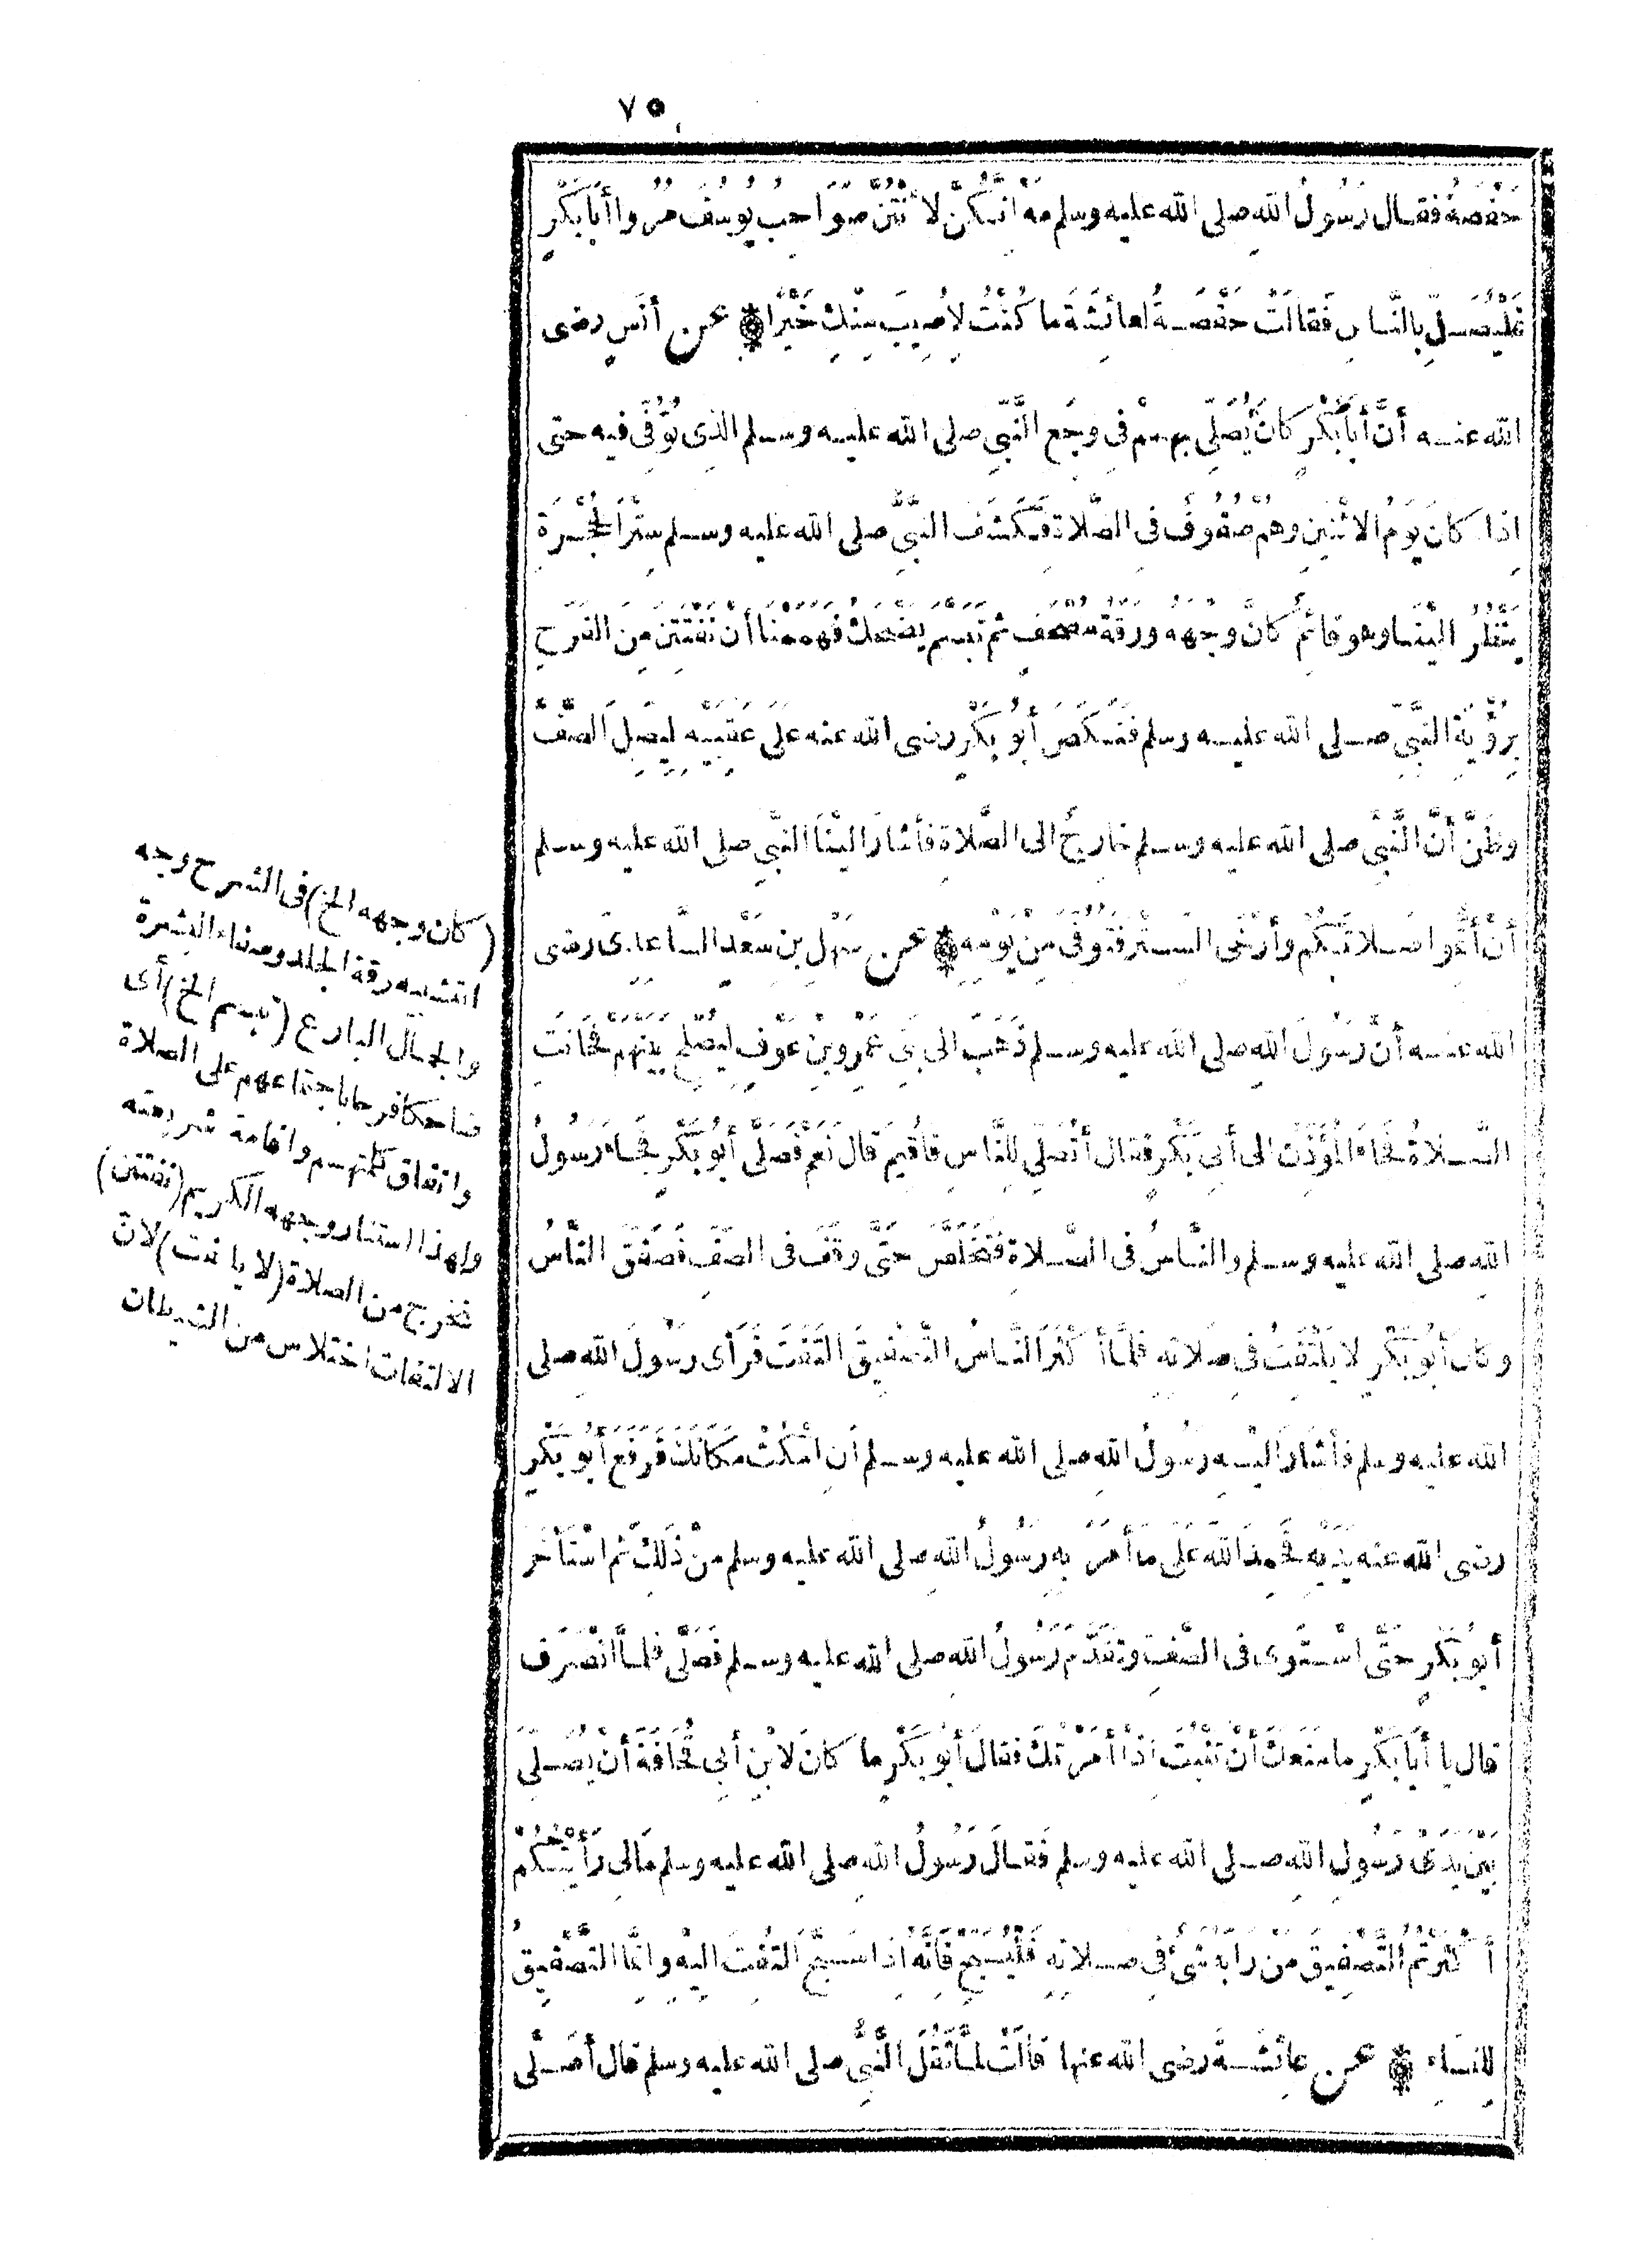 ٧٥
حَفْصَةُ فقال رَسُولُ اللهِ صلى الله عليه وسلم مَهْ انَّكُنَّ لَأَنْتُنَّ صَوَاحِبُ يُوسُفَ مُرُوا أَبَا بَكْرٍ
فَلْيُصَلِّ بِالنَّاسِ فَقَالَتْ حَفْصَةُ لعائشَةَ ما كُنْتُ لِأُصِيبَ مِنْكِ خَيْرًا ۞ عن أنَسٍ رضى
الله عنه أنَّ أَبَا بَكْرٍ كانَ يُصَلِّى بهِمْ فى وجَعِ النَّبىِّ صلى الله عليه وسلم الذِى تُوُفِّىَ فيه حتى
إذا كانَ يَوْمُ الاثْنَيْنِ وهُمْ صُفُوفٌ فى الصَّلاةِ فَكَشَفَ النَّبىُّ صلى الله عليه وسلم سِتْرَ الحُجْرَةِ
يَنْظُرُ الَيْنَا وهو قائمٌ كانَّ وجْهَهُ ورَقَةُ مُصْحَفٍ ثم تَبَسَّمَ يَضْحَكُ فَهَمَمْنَا أنْ نَفْتَتِنَ مِنَ الفَرَحِ
بِرُؤْيَةِ النَّبىِّ صلى الله عليه وسلم فَنَكَصَ أبُو بَكْرٍ رضى الله عنه علَى عَقِبَيْهِ لِيَصِلَ الصَّفَّ
وظَنَّ أنَّ النَّبىَّ صلى الله عليه وسلم خارِجٌ الى الصَّلاةِ فأشارَ الَيْنَا النَّبىُّ صلى الله عليه وسلم
أنْ أتِمُّوا صَلاتَكُمْ وأرْخَى السِّتْرَ فَتُوُفِّىَ مِنْ يَوْمِهِ ۞ عن سَهْلِ بنِ سَعْدٍ السَّاعِدِىِّ رضى
الله عنه أنَّ رَسُولَ اللهِ صلى الله عليه وسلم ذَهَبَ الى بَنِى عَمْرِو بْنِ عَوْفٍ لِيُصْلِحَ بَيْنَهُمْ فَحَانَتِ
الصَّلاةُ فَجَاءَ المُؤَذِّنُ الى أبِى بَكْرٍ فقال أتُصَلِّى لِلنَّاسِ فَأُقِيمَ قال نَعَمْ فَصَلَّى أبُو بَكْرٍ فَجَاءَ رَسُولُ
اللهِ صلى الله عليه وسلم والنَّاسُ فى الصَّلاةِ فَتَخَلَّصَ حَتَّى وقَفَ فى الصَّفِّ فَصَفَّقَ النَّاسُ
وكانَ أبُو بَكْرٍ لا يَلْتَفِتُ فى صَلاتِهِ فلمَّا أكْثَرَ النَّاسُ التَّصْفِيقَ التَفَتَ فَرَأى رَسُولَ اللهِ صلى
الله عليه وسلم فأشَارَ الَيْهِ رَسُولُ اللهِ صلى الله عليه وسلم أنِ امْكُثْ مَكَانَكَ فَرَفَعَ أبُو بَكْرٍ
رضى الله عنه يَدَيْهِ فَحَمِدَ اللهَ علَى مَا أمَرَ بِهِ رَسُولُ اللهِ صلى الله عليه وسلم مِنْ ذَلِكَ ثم اسْتَأْخَرَ
أبُو بَكْرٍ حَتَّى اسْتَوَى فى الصَّفِّ وتَقَدَّمَ رَسُولُ اللهِ صلى الله عليه وسلم فَصَلَّى فلمَّا انْصَرَفَ
قال يا أبَا بَكْرٍ ما مَنَعَكَ أنْ تَثْبُتَ إذْ أمَرْتُكَ فقالَ أبُو بَكْرٍ ما كانَ لابْنِ أبِى قُحَافَةَ أنْ يُصَلِّىَ
بَيْنَ يَدَىْ رَسُولِ اللهِ صلى الله عليه وسلم فَقالَ رَسُولُ اللهِ صلى الله عليه وسلم مَالِى رَأَيْتُكُمْ
أكْثَرْتُمُ التَّصْفِيقَ مَنْ رَابَهُ شَىْءٌ فِى صَلاتِهِ فَلْيُسَبِّحْ فَإنَّهُ إذَا سَبَّحَ التُفِتَ الَيْهِ وإنَّمَا التَّصْفِيقُ
لِلنِّسَاءِ ۞ عن عائشَةَ رضى الله عنها قالَتْ لمَّا ثَقُلَ النَّبىُّ صلى الله عليه وسلم قال أصَلَّى
(كان وجهه الخ) فى الشرح وجه
التشبيه رقة الجلد وصفاء البشرة
والجمال البارع (تبسم الخ) أى
ضاحكا فرحا باجتماعهم على الصلاة
واتفاق كلمتهم واقامة شريعته
ولهذا استنار وجهه الكريم (نفتتن)
نخرج من الصلاة (لا يلتفت) لان
الالتفات اختلاس من الشيطان